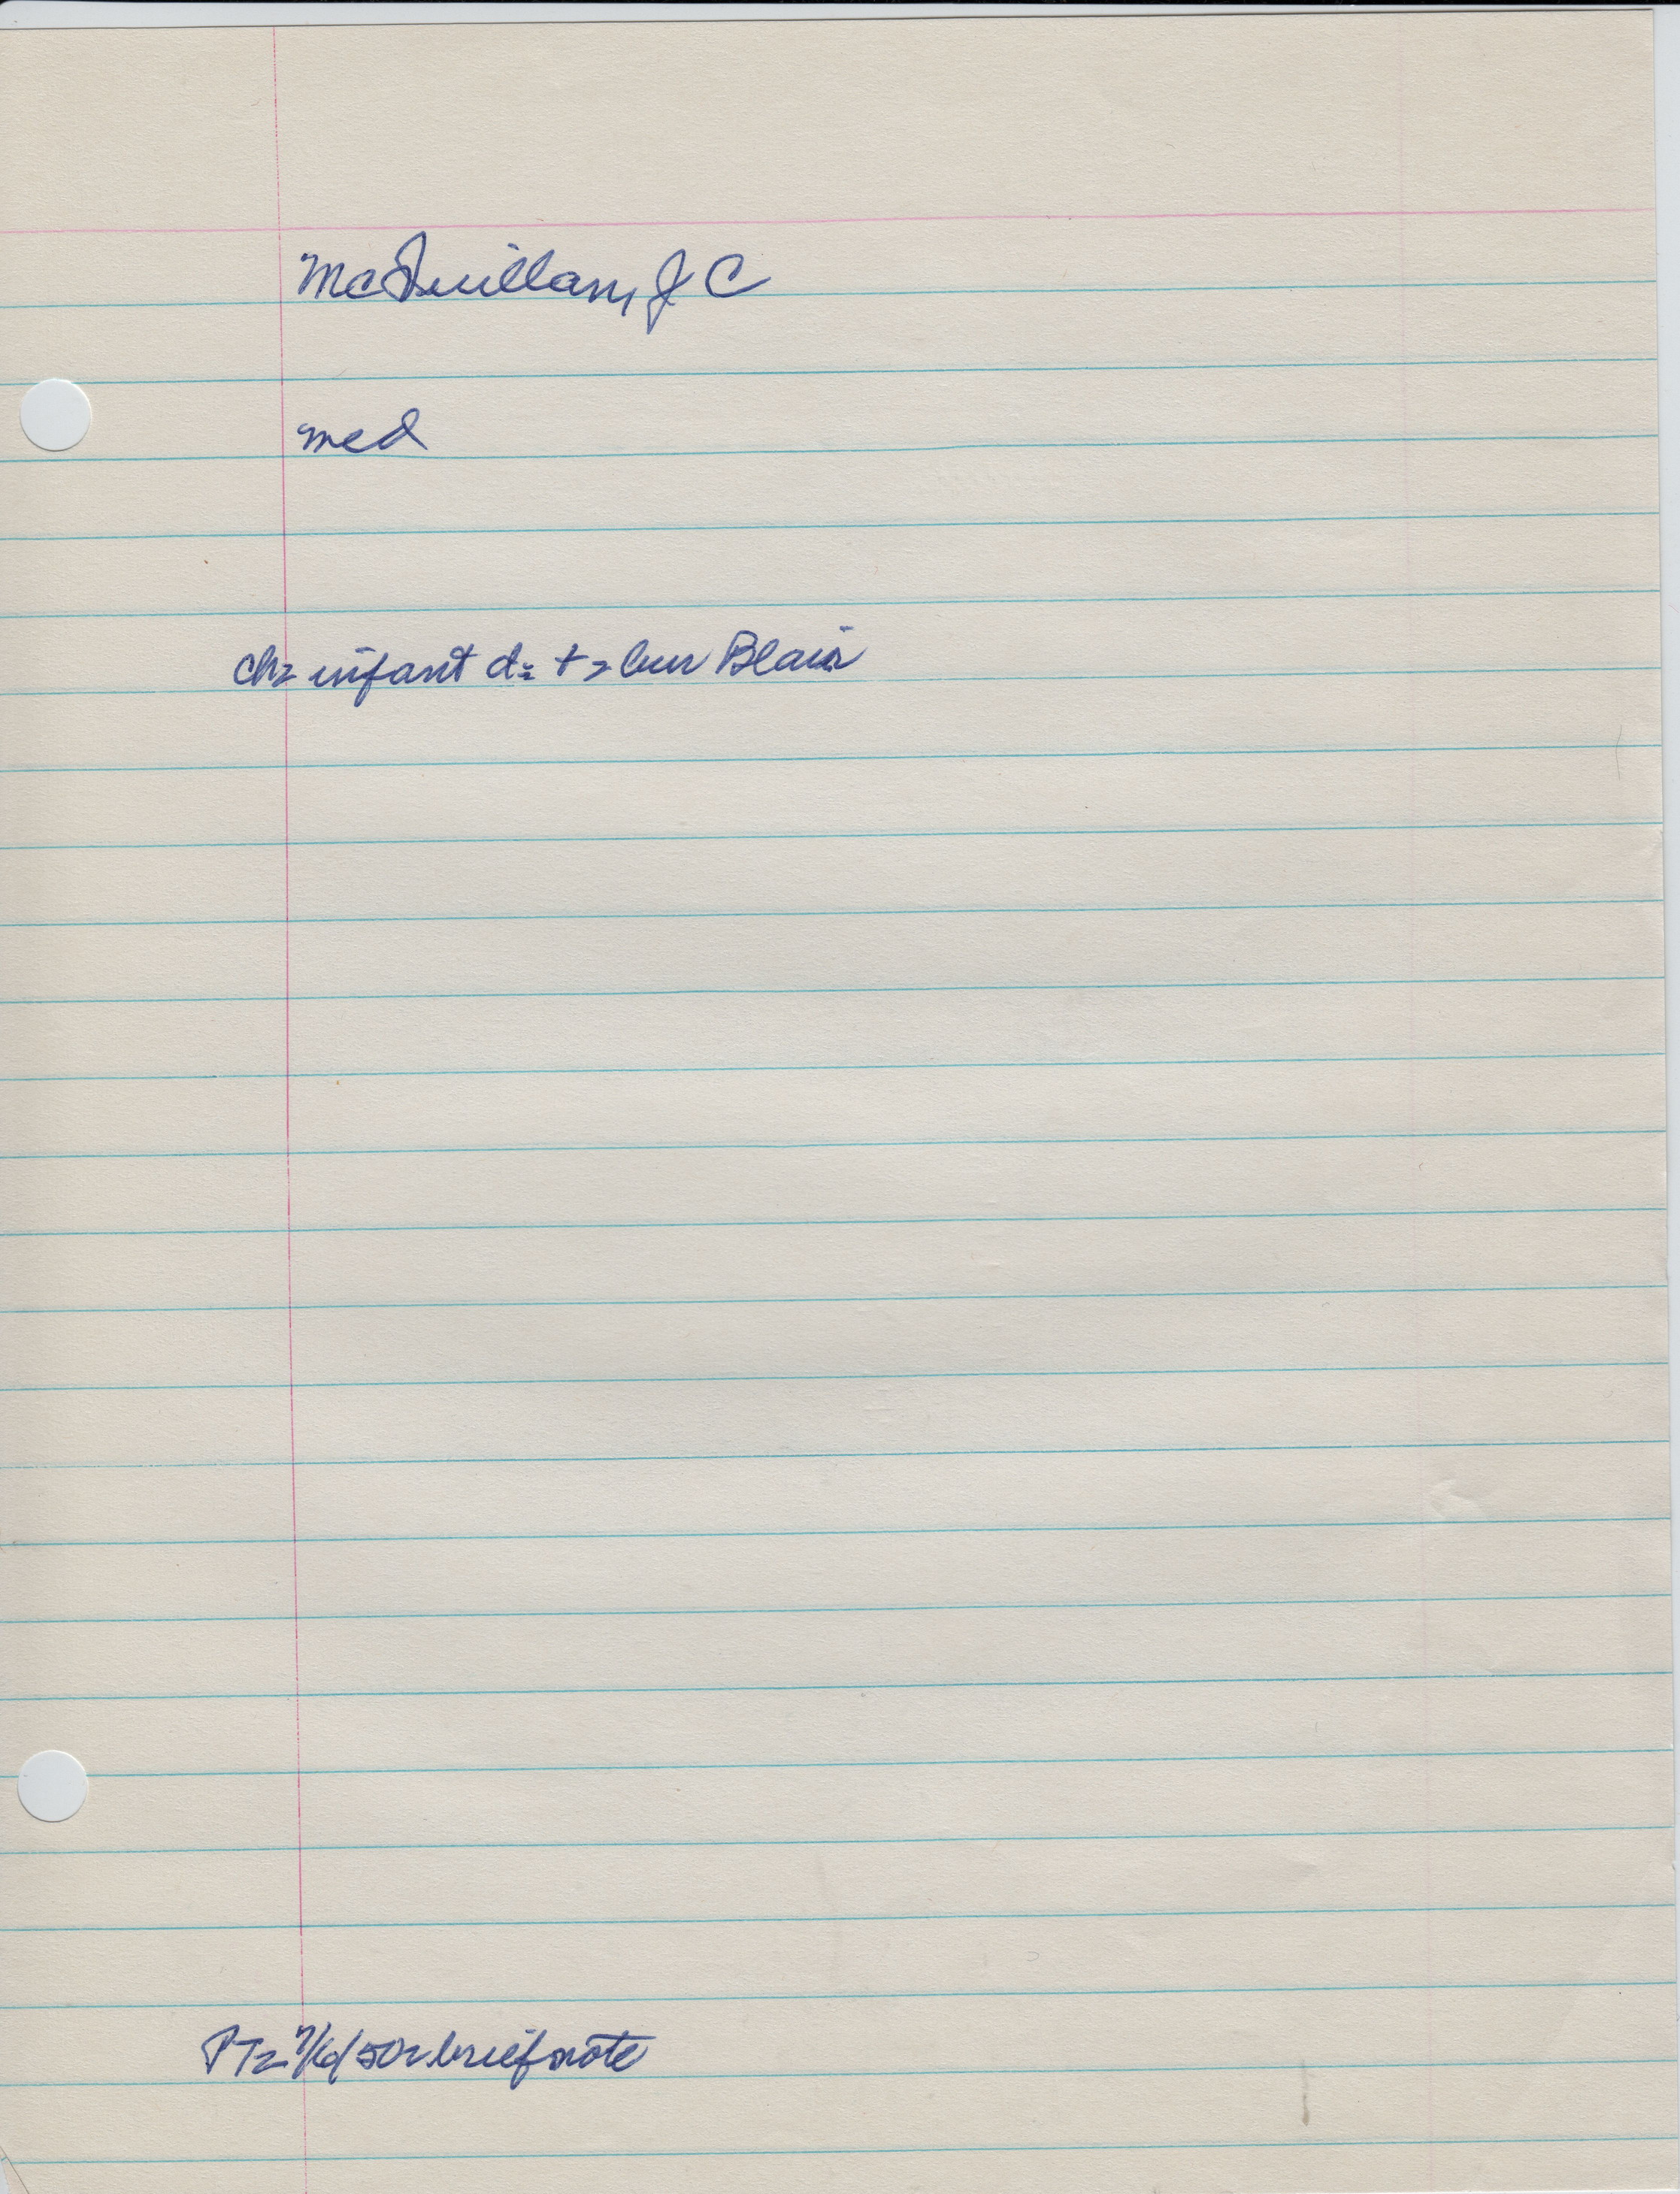 McQuillan, J C
med
ch= infant d= t= bur Blair
PT= 7/6/50= brief note